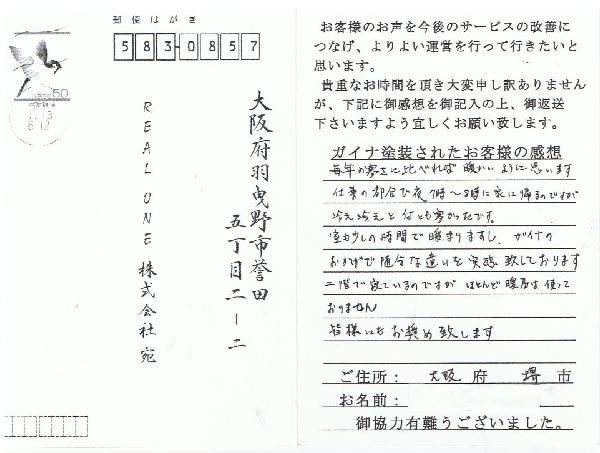 郵便はがき
583-0857
50
大阪府羽曳野市誉田
五丁目二ー二
REAL UNE 株式会社 宛
お客様のお声を今後のサービスの改善に
つなげ、よりよい運営を行って行きたいと
思います。
貴重なお時間を頂き大変申し訳ありません
が、下記に御感想を御記入の上、御返送
下さいますよう宜しくお願い致します。
ガイナ塗装されたお客様の感想
毎年の寒さに比べれば 暖かいように思います
仕事の都合で夜 7時～8時に家に帰るのですが
冷え冷えと 何とも寒かったです。
室も少しの時間で暖まりますし、ガイナの
おかげで随分な違いを実感致しております
二階で寝ているのですが ほとんど暖房は使って
おりません
皆様にもお奨め致します
ご住所： 大阪 府 堺 市
お名前：
御協力有難うございました。